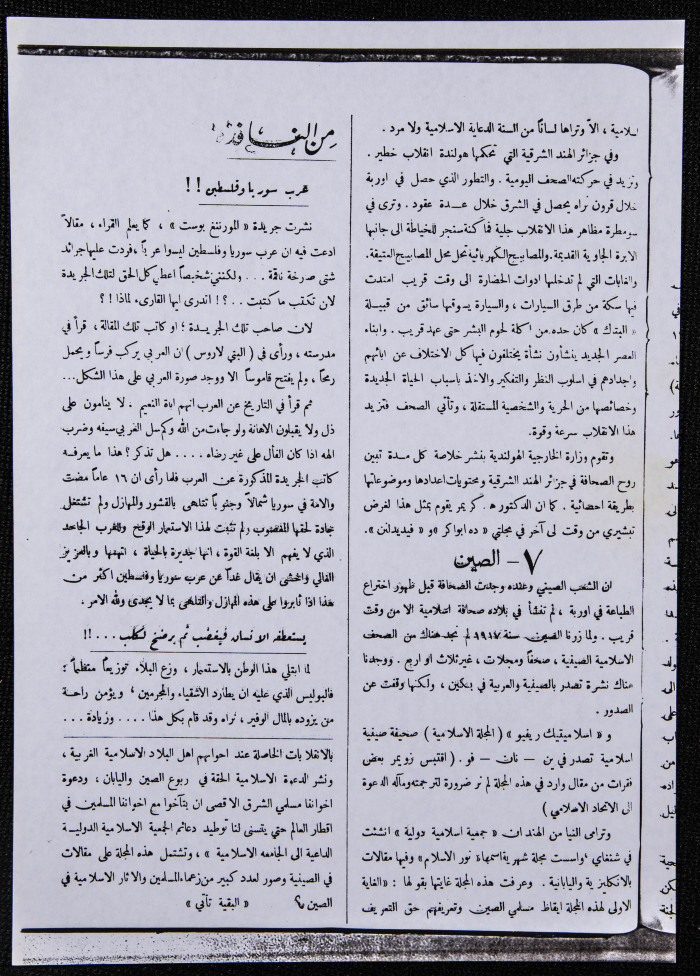 اسلامية ، الاّ وتراها لساناً من السنة الدعاية الاسلامية ولا مرد .
وفي جزائر الهند الشرقية التي تحكمها هولندة انقلاب خطير .
وتزيد في حركته الصحف اليومية . والتطور الذي حصل في اوربة
خلال قرون نراه يحصل في الشرق خلال عـدة عقود . وترى في
سومطرة مظاهر هذا الانقلاب جلية فماكنة سنجر للخياطة الى جانبها
الابرة الجاوية القديمة. والمصابيح الكهربائية تحل محل المصابيح العتيقة.
والغابات التي لم تدخلها ادوات الحضارة الى وقت قريب امتدت
فيها سكة من طرق السيارات ، والسيارة يسوقها سائق من قبيـلة
« البتك » كان جده من اكلة لحوم البشر حتى عهد قريب . وابناء
العصر الجديد ينشأون نشأة يختلفون فيها كل الاختلاف عن ابائهم
واجدادهم في اسلوب النظر والتفكير والاخذ باسباب الحياة الجديدة
وخصائصها من الحرية والشخصية المستقلة ، وتأتي الصحف فتزيد
هذا الانقلاب سرعة وقوة.
وتقوم وزارة الخارجية الهولندية بنشر خلاصة كل مـدة تبين
روح الصحافة في جزائر الهند الشرقية ومحتويات اعدادها وموضوعاتها
بطريقة احصائية . كما ان الدكتور ه. كريمر يقوم بمثل هذا لغرض
تبشيري من وقت لى آخر في مجلتي « ده ابواكر » و« فيديدانن ».
٧ - الصين
ان الشعب الصيني وعنده وجدت الصحافة قبل ظهور اختراع
الطباعة في اوربة ، لم تنشأ في بلاده صحافة اسلامية الا من وقت
قريب . ولما زرنا الصين سنة ١٩١٧ لم نجد هناك من الصحف
الاسلامية الصينية ، صحفاً ومجلات ، غير ثلاث او اربع . ووجدنا
هناك نشرة تصدر بالصينية والعربية في بكين ، ولكنها وقفت عن
الصدور .
و « اسلاميتيك ريفيو » ( المجلة الاسلامية ) صحيفة صينية
اسلامية تصدر في ين — نان — فو . ( اقتبس زويمر بعض
فقرات من مقال وارد في هذه المجلة لم نر ضرورة لترجمته ومآله الدعوة
الى الاتحاد الاسلامي )
وترامى الينا من الهند ان « جمعية اسلامية دولية » انشئت
في شنغاي ، واسست مجلة شهرية اسمها « نور الاسلام » وفيها مقالات
بالانكليزية واليابانية . وعرفت هذه المجلة غايتها بقولها : « الغاية
الاولى لهذه المجلة ايقاظ مسلمي الصين وتعريفهم حق التعريف
من النافذة
عرب سوريا وفلسطين !!
نشرت جريدة « المورننغ بوست » ، كما يعلم القراء ، مقالاً
ادعت فيه ان عرب سوريا وفلسطين ليسوا عرباً ، فردت عليها جرائد
شتى صرخة ناقمة . . . ولكنني شخصياً اعطي كل الحق لتلك الجريدة
لان تكتب ما كتبت . . ؟! اتدري ايها القارىء لماذا ؟!
لان صاحب تلك الجريـدة ؛ او كاتب تلك المقالة ، قرأ في
مدرسته ، ورأى في ( البتي لاروس ) ان العربي يركب فرساً ويحمل
رمحاً ، ولم يفتح قاموساً الا ووجد صورة العربي على هذا الشكل...
ثم قرأ في التاريخ عن العرب انهم اباة الضيم . لا ينامون على
ذل ولا يقبلون الاهانة ولو جاءت من الله وكم سل العربي سيفه وضرب
الهه اذا كان الفأل على غير رضاه . . . . هل تذكر ؟ هذا ما يعرفه
كاتب الجريدة المذكورة عن العرب فلما رأى ان ١٦ عاماً مضت
والامة في سوريا شمالاً وجنوباً تتلاهى بالقشور والمهازل ولم تشتغل
جادة لحقها المغصوب ولم تثبت لهذا الاستعمار الوقح وللغرب الجاحد
الذي لا يفهم الا بلغة القوة ، انها جديرة بالحياة ، اتهمها وبالعزيز
الغالي واخشى ان يقال غداً عن عرب سوريا وفلسطين اكثر من
هذا اذا ثابروا على هذه المهازل والتلاهي بما لا يجدي ولله الامر .
يستعطفه الانسان فيغضب ثم يرضخ لكلب . . . !!
لما ابتلي هذا الوطن بالاستعمار ، وزع البلاء توزيعاً منظماً ؛
فالبوليس الذي عليه ان يطارد الاشقياء والمجرمين ، ويؤمن راحـة
من يزوده بالمال الوفير ، نراه وقد قام بكل هذا . . . . وزيادة ...
بالانقلابات الحاصلة عند اخوانهم اهل البلاد الاسلامية الغربية ،
ونشر الدعوة الاسلامية الحقة في ربوع الصين واليابان ، ودعوة
اخواننا مسلمي الشرق الاقصى ان يتآخوا مع اخواننا المسلمين في
اقطار العالم حتى يتسنى لنا توطيد دعائم الجمعية الاسلامية الدوليـة
الداعية الى الجامعه الاسلامية » ، وتشتمل هذه المجلة على مقالات
في الصينية وصور لعدد كبير من زعماء المسلمين والاثار الاسلامية في
الصين « البقية تأتي »